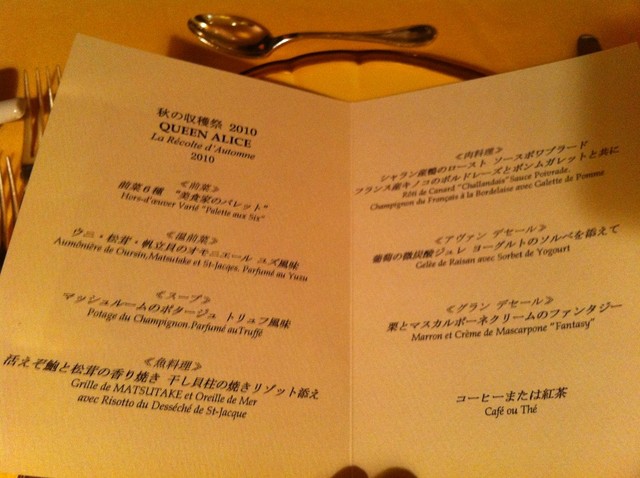 秋の収穫祭 2010
QUEEN ALICE
La Récolte d'Automne
2010
≪前菜≫
前菜6種 "美食家のパレット"
Hors-d'œuver Varié "Palette aux Six"
≪温前菜≫
ウニ・松茸・帆立貝のオモニエール ユズ風味
Aumônière de Oursin,Matsutake et St-Jacqes. Parfumé au Yuzu
≪スープ≫
マッシュルームのポタージュ トリュフ風味
Potage du Champignon.Parfumé auTruffé
≪魚料理≫
活えぞ鮑と松茸の香り焼き 干し貝柱の焼きリゾット添え
Grille de MATSUTAKE et Oreille de Mer
avec Risotto du Desséché de St-Jacque
≪肉料理≫
シャラン産鴨のロースト ソースポワブラード
フランス産キノコのボルドレーズとポンムガレットと共に
Rôti de Canard "Challandais"Sauce Poivrade.
Champignon du Français à la Bordelaise avec Galette de Pomme
≪アヴァン デセール≫
葡萄の微炭酸ジュレ ヨーグルトのソルベを添えて
Gelée de Raisan avec Sorbet de Yogourt
≪グラン デセール≫
栗とマスカルポーネクリームのファンタジー
Marron et Crème de Mascarpone "Fantasy"
コーヒーまたは紅茶
Café ou Thé